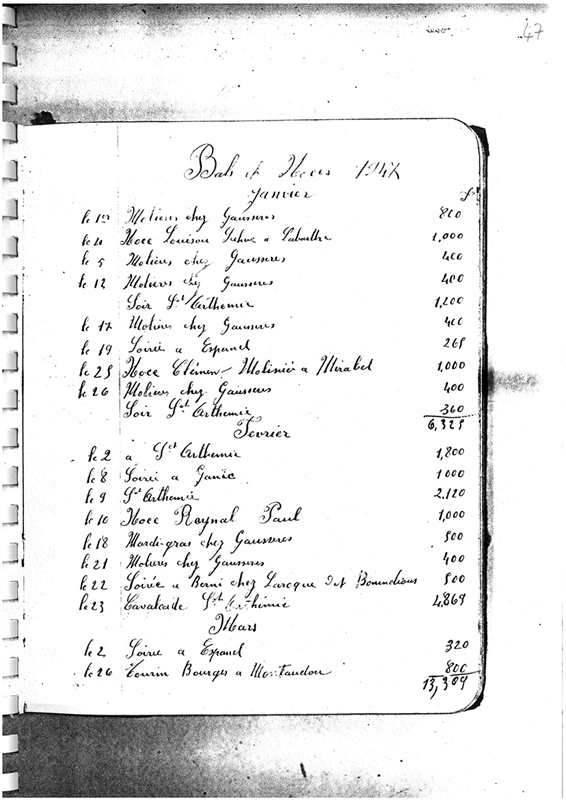 47
Bals et Noces 1947
Janvier
f
le 1er Molieres chez Gausseres 800
le 4 Noce Louisou à Labouthe 1,000
le 5 Molieres chez Gausseres 400
le 12 Molieres chez Gausseres 400
Soir St Arthemie 1,200
le 17 Molieres chez Gausseres 400
le 19 Soirée a Espanel 265
le 25 Noce Clémen- Molinié a Mirabel 1,000
le 26 Molieres chez Gausseres 400
Soir St Arthemie 360
6,325
Fevrier
le 2 a St Arthemie 1,800
le 8 Soirée a Janéc 1000
le 9 St Arthemie 2,120
le 10 Noce Raynal Paul 1,000
le 18 Mardi-gras chez Gausseres 500
le 21 Molieres chez Gausseres 400
le 22 Soirée a Berni chez Larroque 500
le 23 Cavalcade St Arthémie 4,869
Mars
le 2 Soiree a Espanel 320
le 26 Tourin Bourges a Montaudon 800
13,309